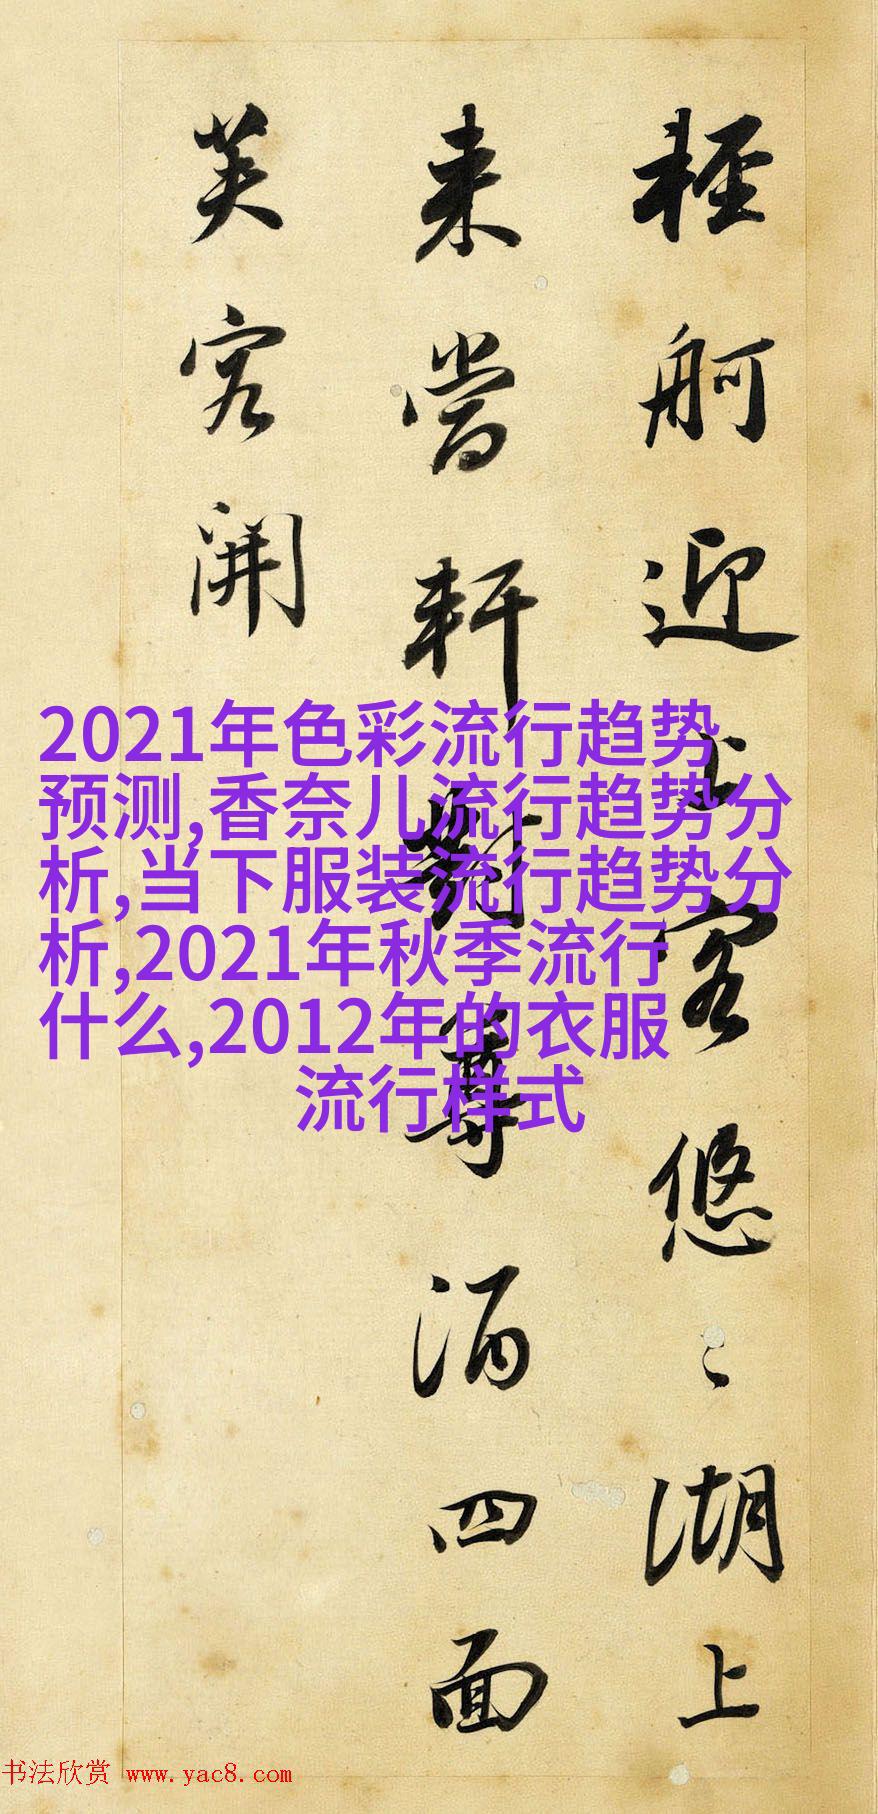 輕舸迎上客悠〻湖上
來當軒對尊酒四面
芙容開
2021年色彩流行趋势
预测,香奈儿流行趋势分
析,当下服装流行趋势分
析,2021年秋季流行
什么,2012年的衣服
流行样式
书法欣赏 www.yac8.com